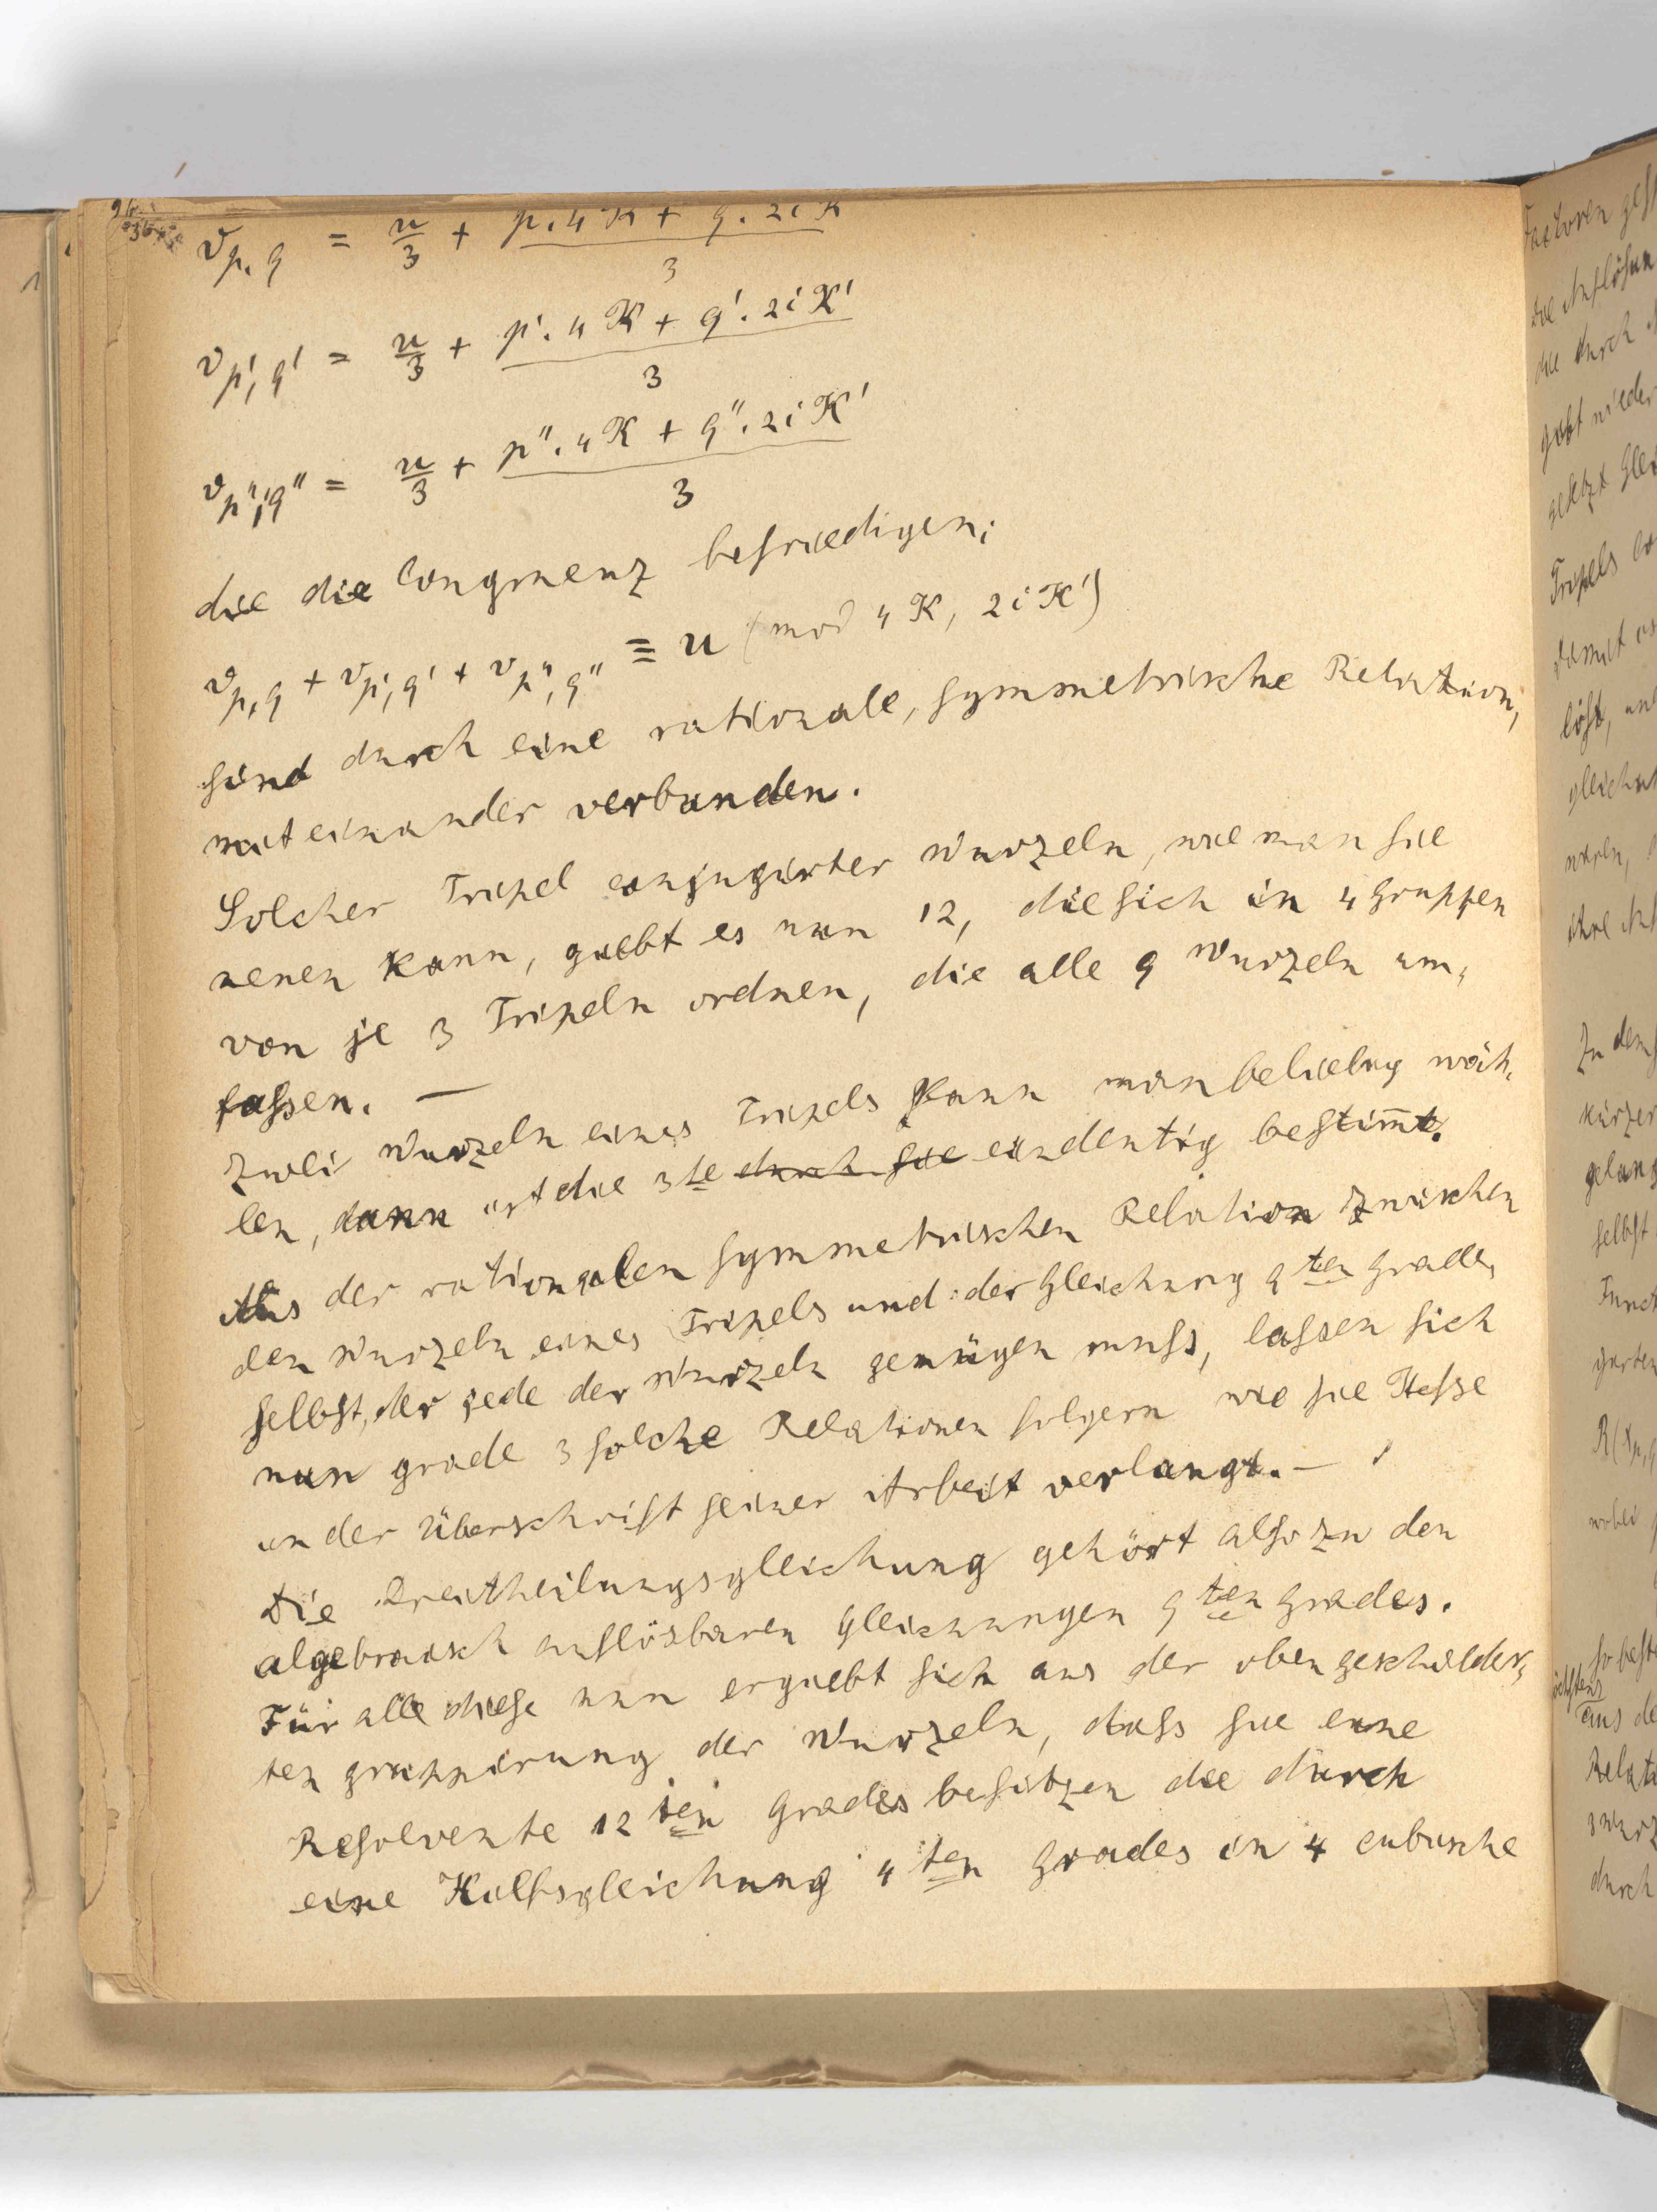 v_{p,q} = u/3 + (p. 4K + q. 2iK')/3
v_{p',q'} = u/3 + (p'. 4K + q'. 2iK')/3
v_{p'',q''} = u/3 + (p''. 4K + q''. 2iK')/3
die die Congruenz befriedigen;
v_{p,q} + v_{p',q'} + v_{p'',q''} ≡ u (mod 4K, 2iK')
sind durch eine rationale, symmetrische Relation,
miteinander verbunden.
Solcher Tripel conjugirter Wurzeln, wie man sie
nenen kann, giebt es nun 12, die sich in 4 Gruppen
von je 3 Tripeln ordnen, die alle 9 Wurzeln um-
fassen. —
Zwei Wurzeln eines Tripels kann man beliebig wäh-
len, dann ist die 3te durch sie eindeutig bestim̅t.
Aus der rationalen symmetrischen Relation zwischen
den Wurzeln eines Tripels und der Gleichung 9ten Grades
selbst, der jede der Wurzeln genügen muss, lassen sich
nun grade 3 solche Relationen folgern wie sie Hesse
in der Überschrift seiner Arbeit verlangt. —
Die Dreitheilungsgleichung gehört also zu den
algebraisch auflösbaren Gleichungen 9ten Grades.
Für alle diese nun ergiebt sich aus der oben geschilder-
ten Gruppirung der Wurzeln, dass sie eine
Resolvente 12ten Grades besitzen die durch
eine Hülfsgleichung 4ten Grades in 4 cubische
Factoren
die Auflösun
die durch
gabt wieder
gesetzt Glei
Tripels
damit
löst,
gleichu
wären,
ihre
Zu dem
kürzer
gelang
selbst
Funct
garten
wobei
so beste
aus de
Relati
durch